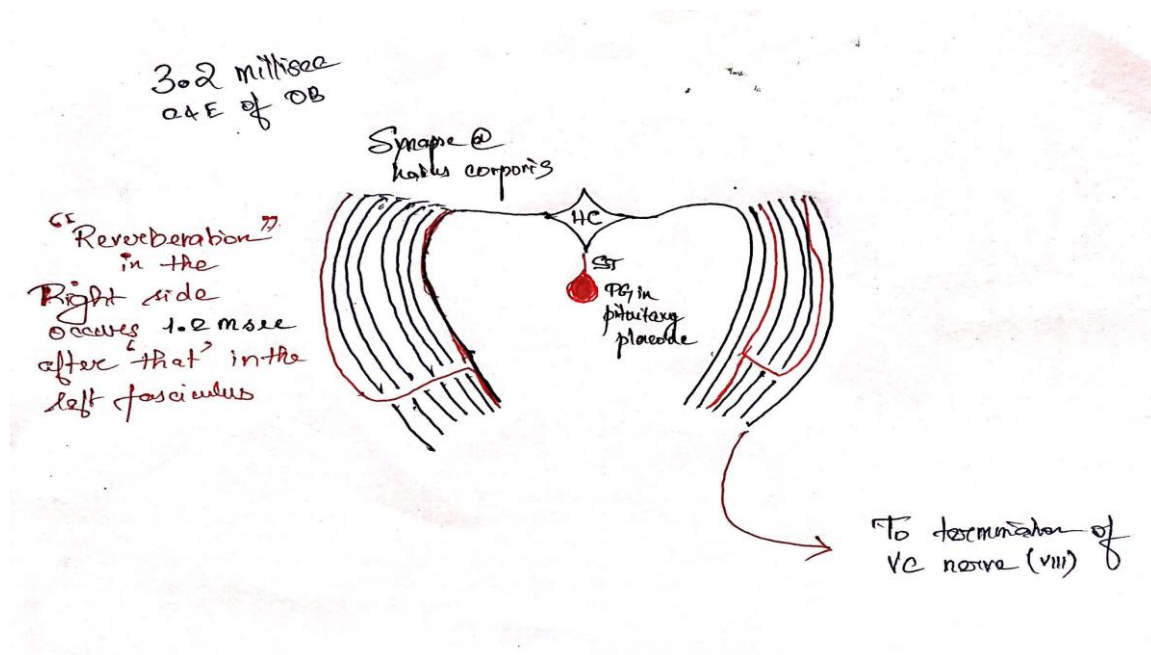 3.2 millisec
a4E of OB
Synapse @
corporis
HC
ST
PG in
pituitary
placode
"Reverberation"
in the
Right side
occurs 1.2 msec
after "that" in the
left fasciculus
To termination of
VC nerve (VIII)